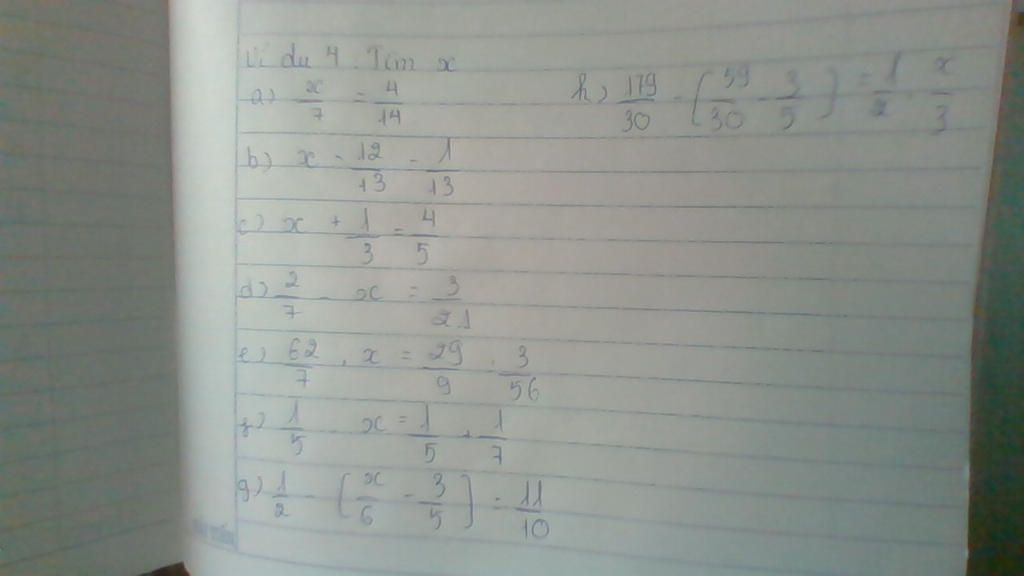 Ví dụ 4. Tìm x
a) x/7 = 4/14
h) 179/30 - [59/30 - 3/5] = 1/2 . x/3
b) x - 12/13 - 1/13
c) x + 1/3 = 4/5
d) 2/7 - x = 3/21
e) 62/7 . x = 29/9 . 3/56
f) 1/5 x = 1/5 + 1/7
g) 1/2 - [x/6 - 3/5] = 11/10